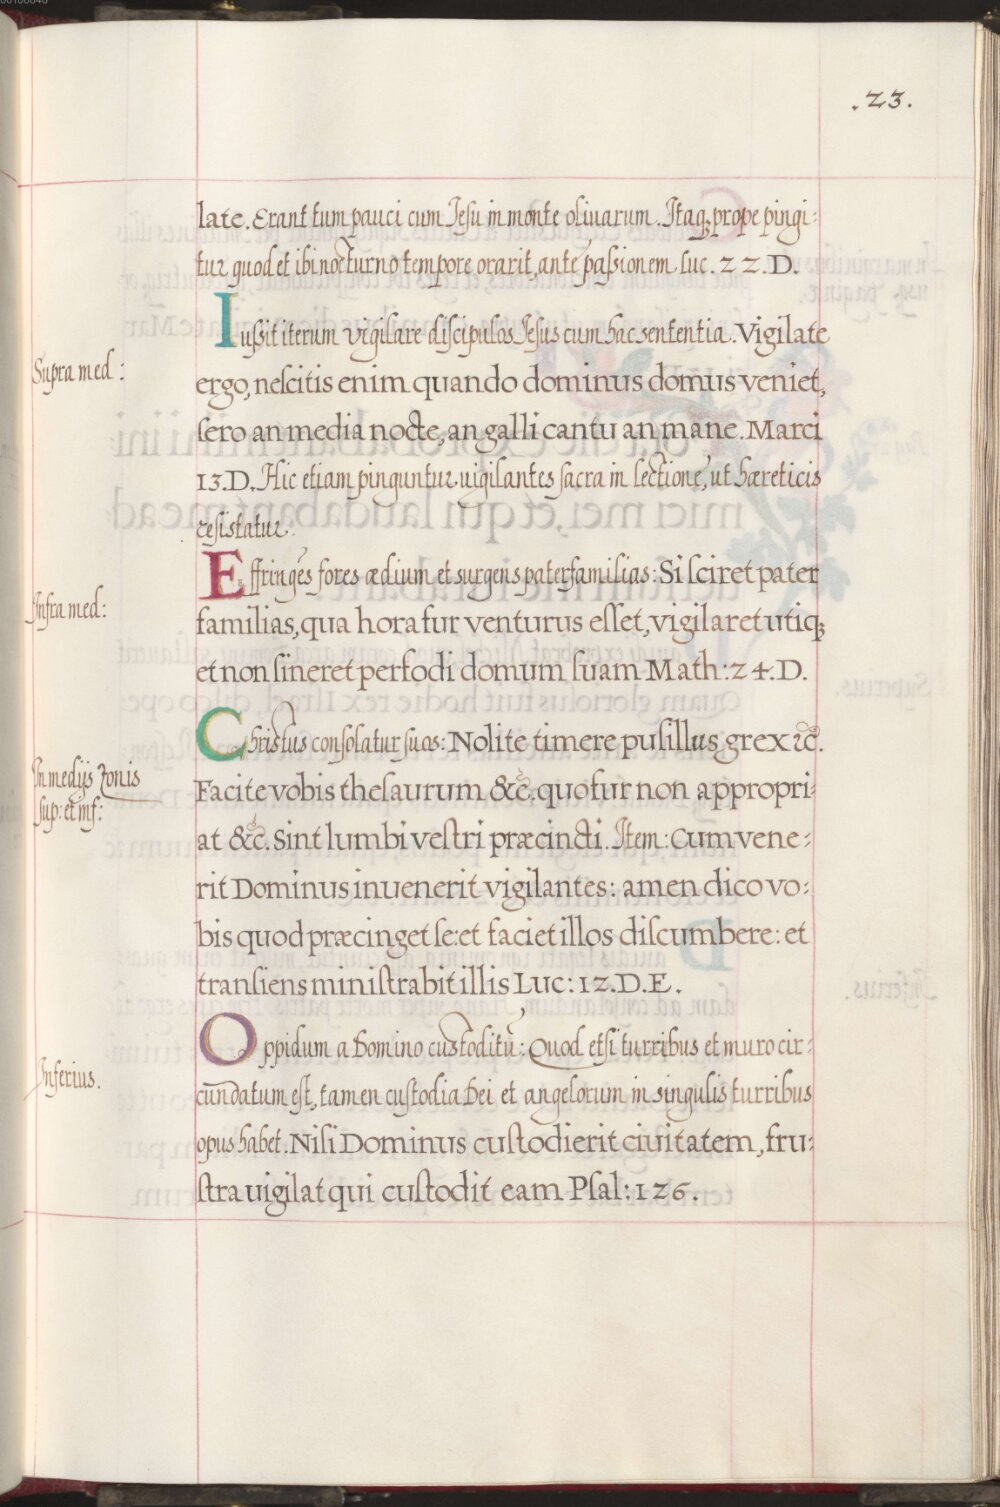 .23.
late. Erant tum pauci cum Jesu in monte oliuarum. Itaq; prope pingi:
tur quod et ibi nocturno tempore orarit, ante paſsionem. luc. 22. D.
Iuſsit iterum vigilare diſcipulos Jeſus cum hac sententia. Vigilate
Supra med:
ergo, neſcitis enim quando dominus domus veniet,
ſero an media nocte, an galli cantu an mane. Marci
13. D. Hic etiam pinguntur uigilantes ſacra in lectione, ut hæreticis
reſistatur.
Effringēs fores ædium et surgens paterfamilias: Si ſciret pater
Infra med:
familias, qua hora fur venturus eſſet, vigilaret utiq;
et non ſineret perfodi domum ſuam Math: 24. D.
Chriſtus conſolatur ſuos: Nolite timere puſillus grex &c.
In medijs zonis
Facite vobis theſaurum &c. quo fur non appropri:
ſup: et inf:
at &c. Sint lumbi veſtri præcincti. Item: Cum vene:
rit Dominus inuenerit vigilantes: amen dico vo:
bis quod præcinget ſe: et faciet illos diſcumbere: et
tranſiens miniſtrabit illis Luc: 12. D. E.
Oppidum a Domino cuſtoditū: Quod etſi turribus et muro cir:
Inferius.
cūndatum eſt, tamen cuſtodia Dei et angelorum in singulis turribus
opus habet. Niſi Dominus cuſtodierit ciuitatem, fru:
ſtra uigilat qui cuſtodit eam Pſal: 126.